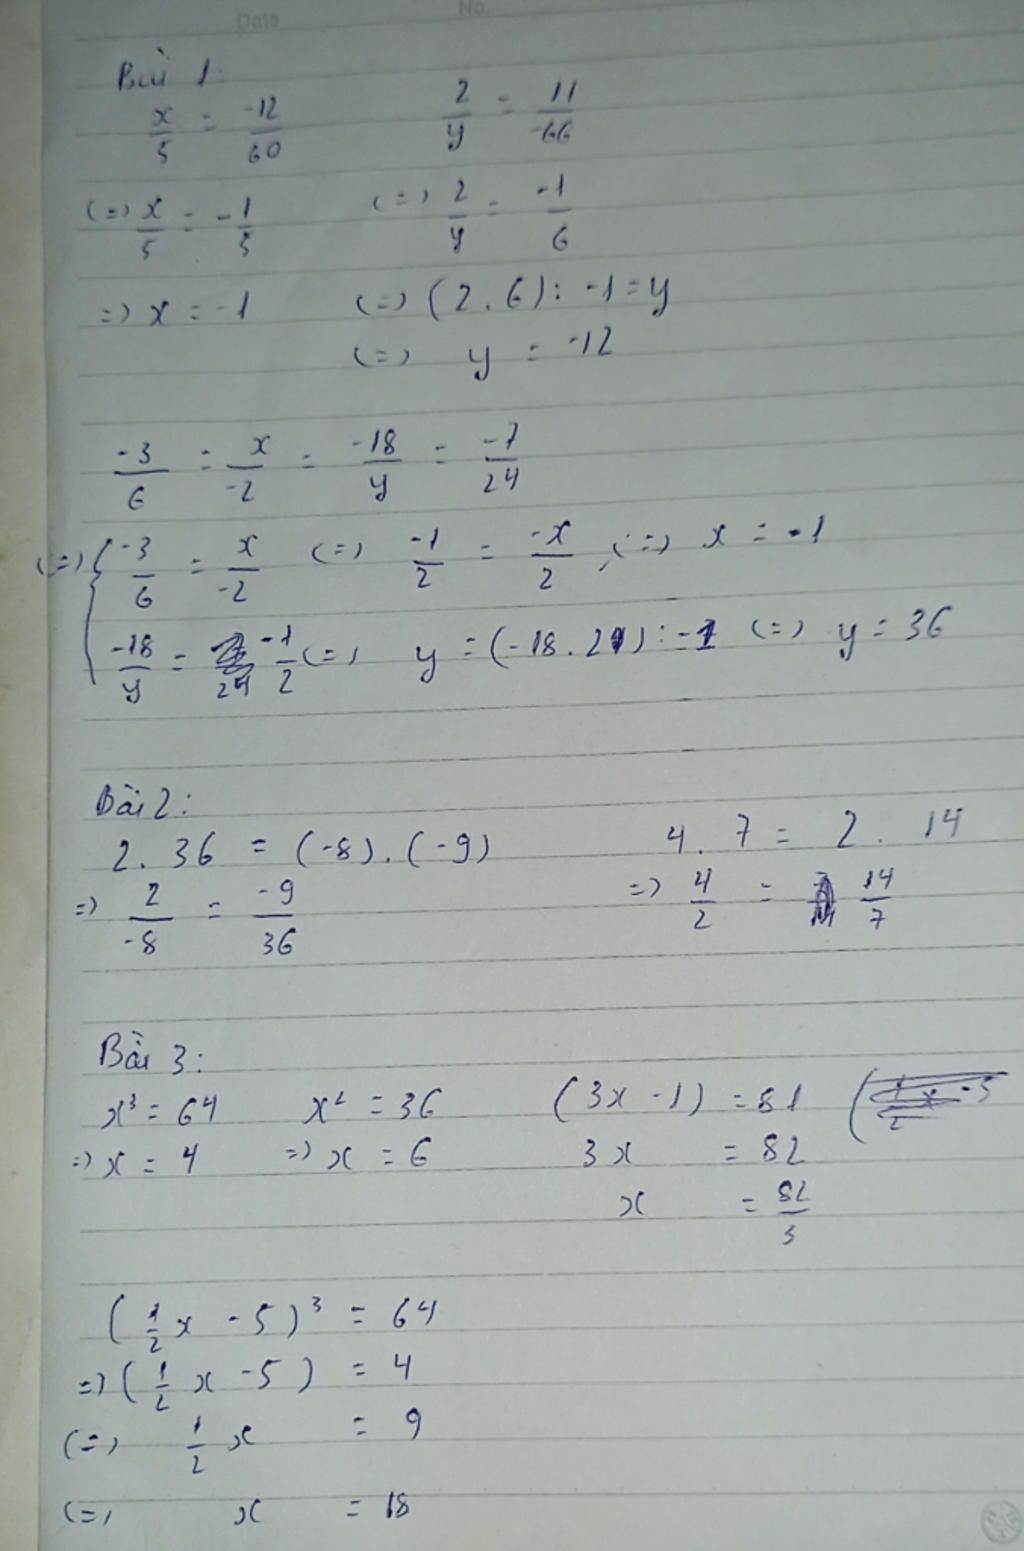 Date No.
Bài 1.
x/5 = -12/60 2/y = 11/-66
(=) x/5 = -1/5 (=) 2/y = -1/6
=) x = -1 (=) (2.6): -1 = y
(=) y = -12
-3/6 = x/-2 = -18/y = -7/24
(=) { -3/6 = x/-2 (=) -1/2 = -x/2 (=) x = -1
-18/y = -1/2 (=) y = (-18.2): -1 (=) y = 36
Bài 2:
2. 36 = (-8).(-9) 4. 7 = 2. 14
=) 2/-8 = -9/36 =) 4/2 = 14/7
Bài 3:
x³ = 64 x² = 36 (3x - 1) = 81
=) x = 4 =) x = 6 3x = 82
x = 82/3
(1/2 x - 5)³ = 64
=) (1/2 x - 5) = 4
(=) 1/2 x = 9
(=) x = 18